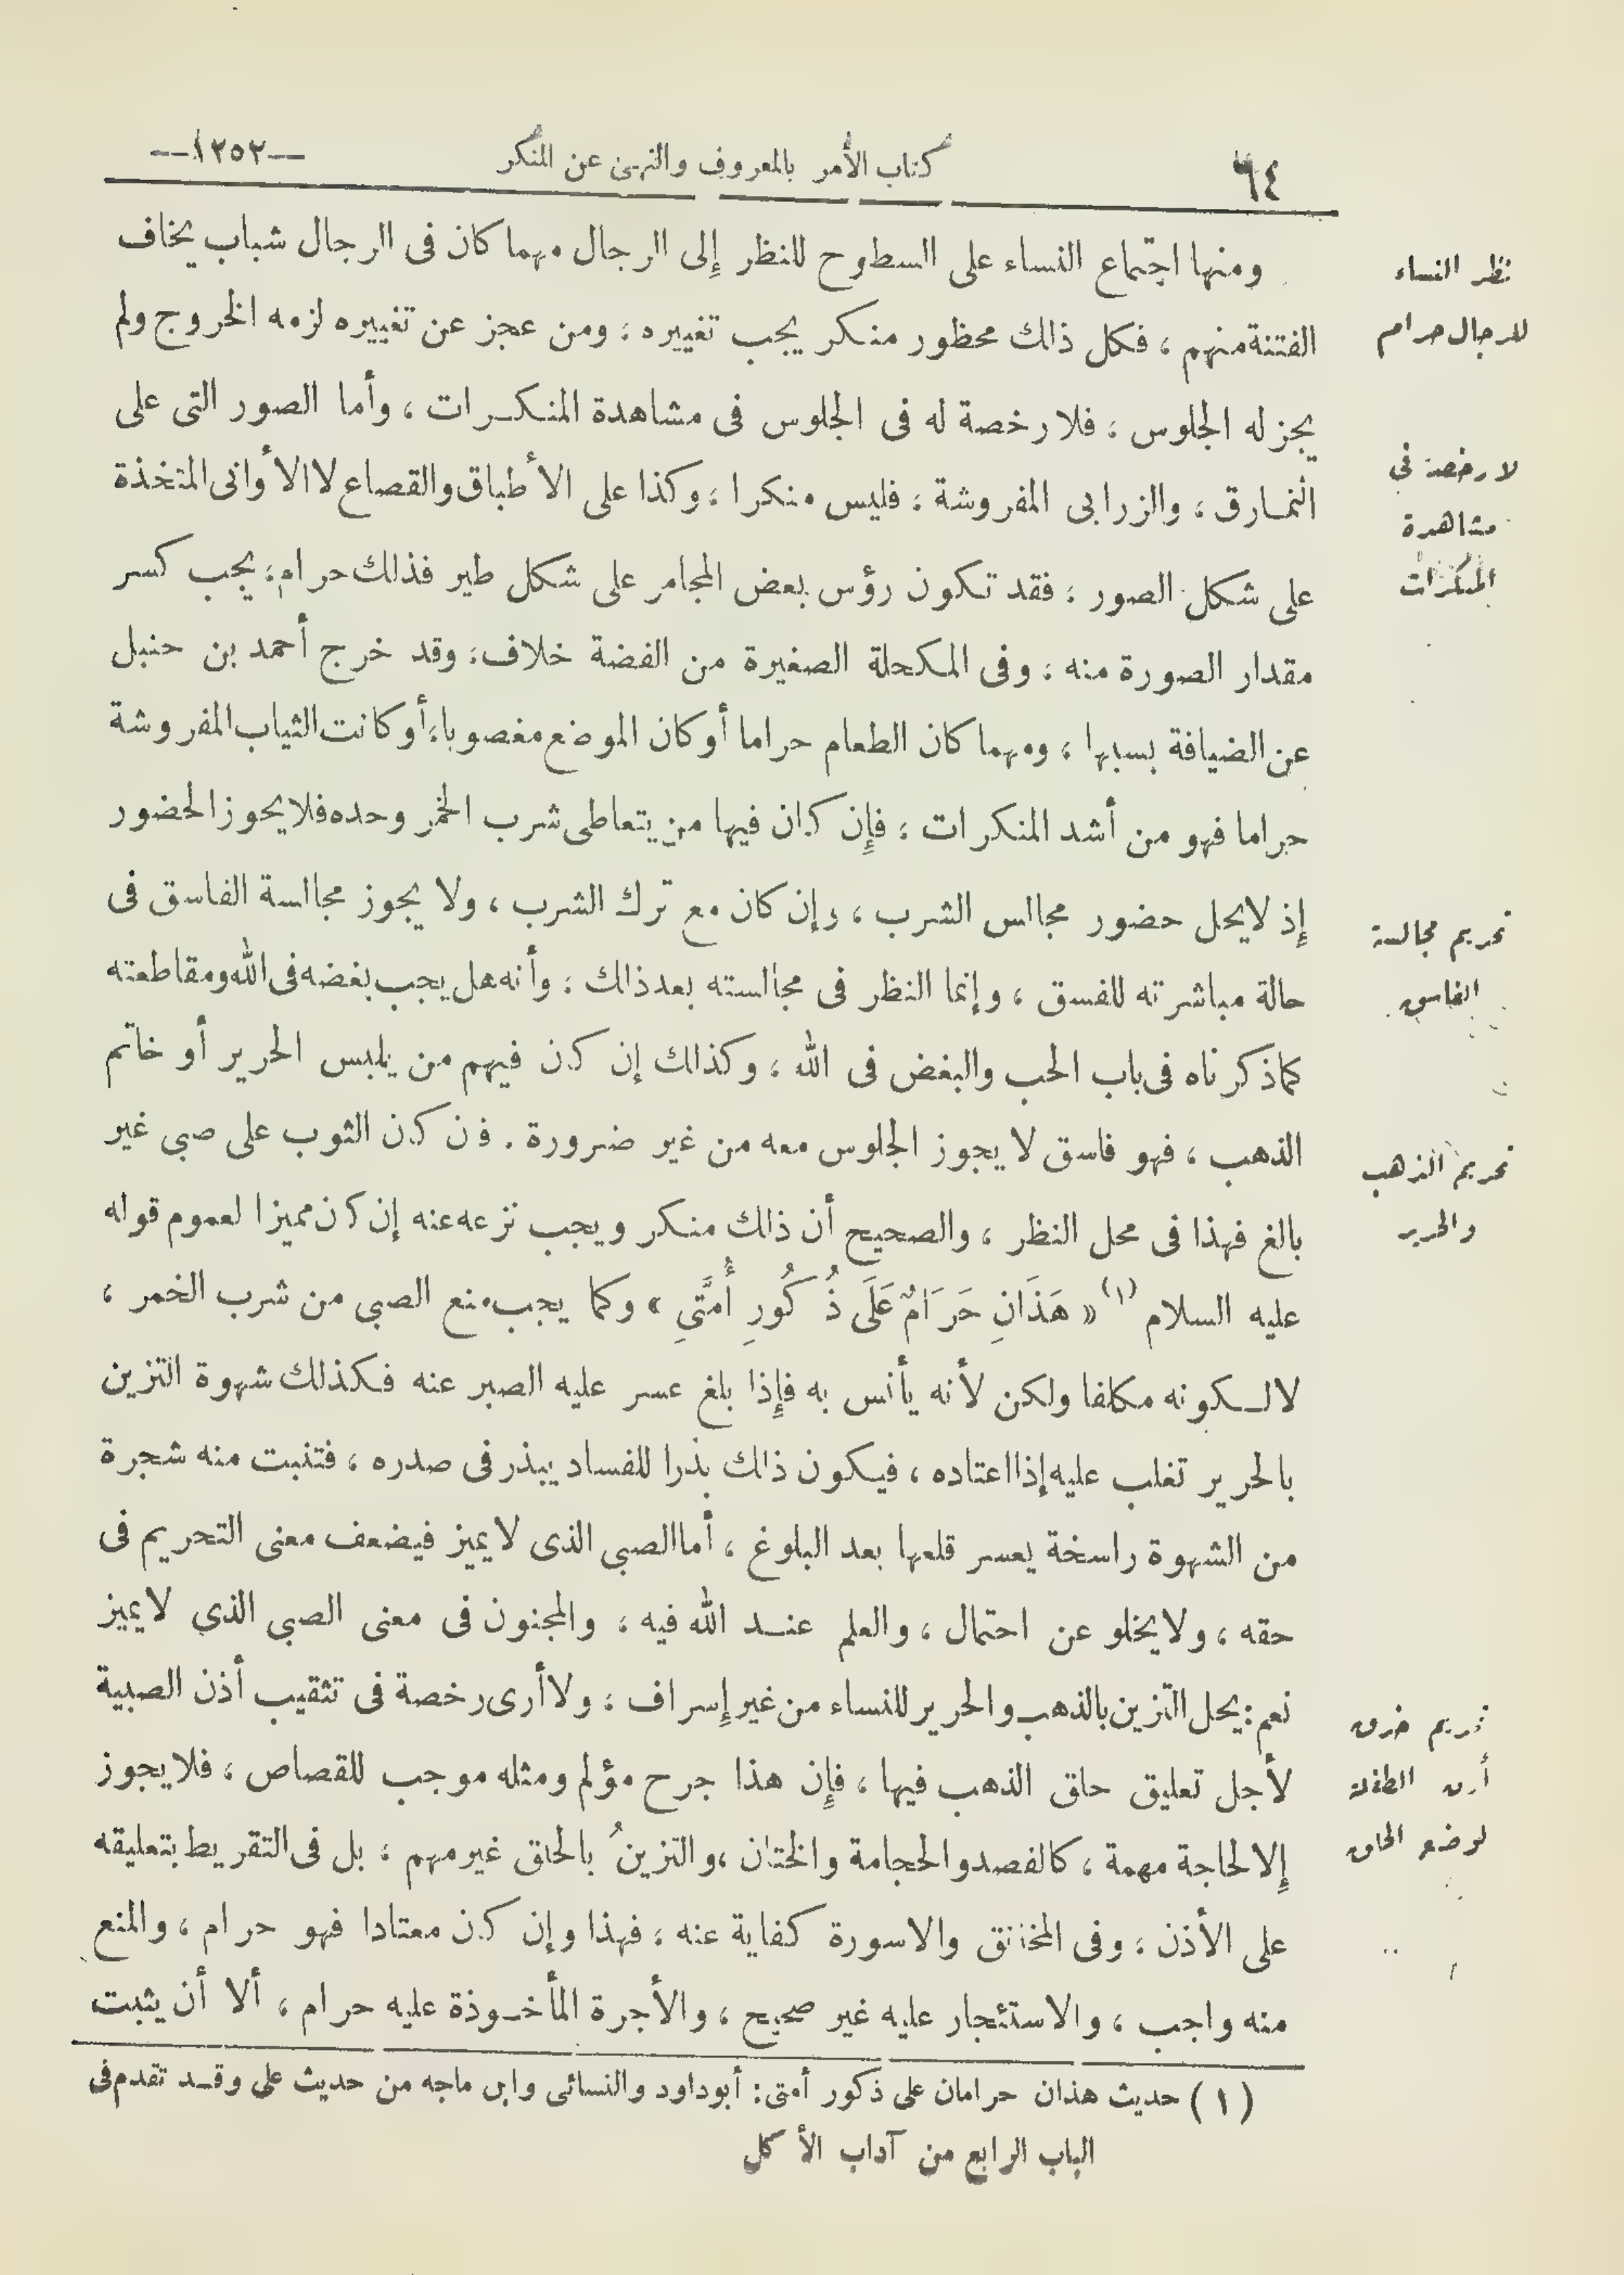 ٦٤
كتاب الأمر بالمعروف والنهى عن المنكر
--١٢٥٢--
ومنها اجتماع النساء على السطوح للنظر إلى الرجال مهما كان فى الرجال شباب يخاف
الفتنة منهم ، فكل ذلك محظور منكر يجب تغييره ؛ ومن عجز عن تغييره لزمه الخروج ولم
يجز له الجلوس ؛ فلا رخصة له فى الجلوس فى مشاهدة المنكرات ، وأما الصور التى على
النمارق ، والزرابى المفروشة ؛ فليس منكرا ؛ وكذا على الأطباق والقصاع لا الأوانى المتخذة
على شكل الصور ؛ فقد تكون رؤس بعض المجامر على شكل طير فذلك حرام ؛ يجب كسر
مقدار الصورة منه ؛ وفى المكحلة الصغيرة من الفضة خلاف ؛ وقد خرج أحمد بن حنبل
عن الضيافة بسببها ؛ ومهما كان الطعام حراما أو كان الموضع مغصوبا ؛ أو كانت الثياب المفروشة
حراما فهو من أشد المنكرات ؛ فإن كان فيها من يتعاطى شرب الخمر وحده فلا يجوز الحضور
إذ لا يحل حضور مجالس الشرب ، وإن كان مع ترك الشرب ، ولا يجوز مجالسة الفاسق فى
حالة مباشرته للفسق ، وإنما النظر فى مجالسته بعد ذلك ؛ وأنه هل يجب بغضه فى الله ومقاطعته
كما ذكرناه فى باب الحب والبغض فى الله ؛ وكذلك إن كان فيهم من يلبس الحرير أو خاتم
الذهب ، فهو فاسق لا يجوز الجلوس معه من غير ضرورة . فإن كان الثوب على صبى غير
بالغ فهذا فى محل النظر ، والصحيح أن ذلك منكر ويجب نزعه عنه إن كان مميزا لعموم قوله
عليه السلام (١) « هَذَانِ حَرَامٌ عَلَى ذُكُورِ أُمَّتِى » وكما يجب منع الصبى من شرب الخمر ،
لا لكونه مكلفا ولكن لأنه يأنس به فإذا بلغ عسر عليه الصبر عنه فكذلك شهوة التزين
بالحرير تغلب عليه إذا اعتاده ، فيكون ذلك بذرا للفساد يبذر فى صدره ، فتنبت منه شجرة
من الشهوة راسخة يعسر قلعها بعد البلوغ ، أما الصبى الذى لا يميز فيضعف معنى التحريم فى
حقه ، ولا يخلو عن احتمال ، والعلم عند الله فيه ؛ والمجنون فى معنى الصبى الذى لا يميز
نعم : يحل التزين بالذهب والحرير للنساء من غير إسراف ؛ ولا أرى رخصة فى تثقيب أذن الصبية
لأجل تعليق حلق الذهب فيها ، فإن هذا جرح مؤلم ومثله موجب للقصاص ، فلا يجوز
إلا لحاجة مهمة ، كالفصد والحجامة والختان ، والتزينُ بالحلق غير مهم ؛ بل فى التقريط بتعليقه
على الأذن ؛ وفى المخانق والاسورة كفاية عنه ؛ فهذا وإن كان معتادا فهو حرام ، والمنع
منه واجب ، والاستئجار عليه غير صحيح ، والأجرة المأخوذة عليه حرام ، ألا أن يثبت
نظر النساء
للرجال حرام
لا رخصة فى
مشاهدة
المنكرات
تحريم مجالسة
الفاسق
تحريم الذهب
والحرير
تحريم خرق
أذن الطفلة
لوضع الحلق
(١) حديث هذان حرامان على ذكور أمتى : أبوداود والنسائى وابن ماجه من حديث على وقد تقدم فى
الباب الرابع من آداب الأكل